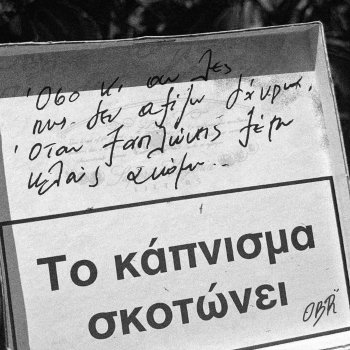 Όσο κι αν λες
πως δεν αξίζω δάκρυα,
όταν ξαπλώνεις ξέρω
κλαις ακόμα...
Το κάπνισμα
σκοτώνει